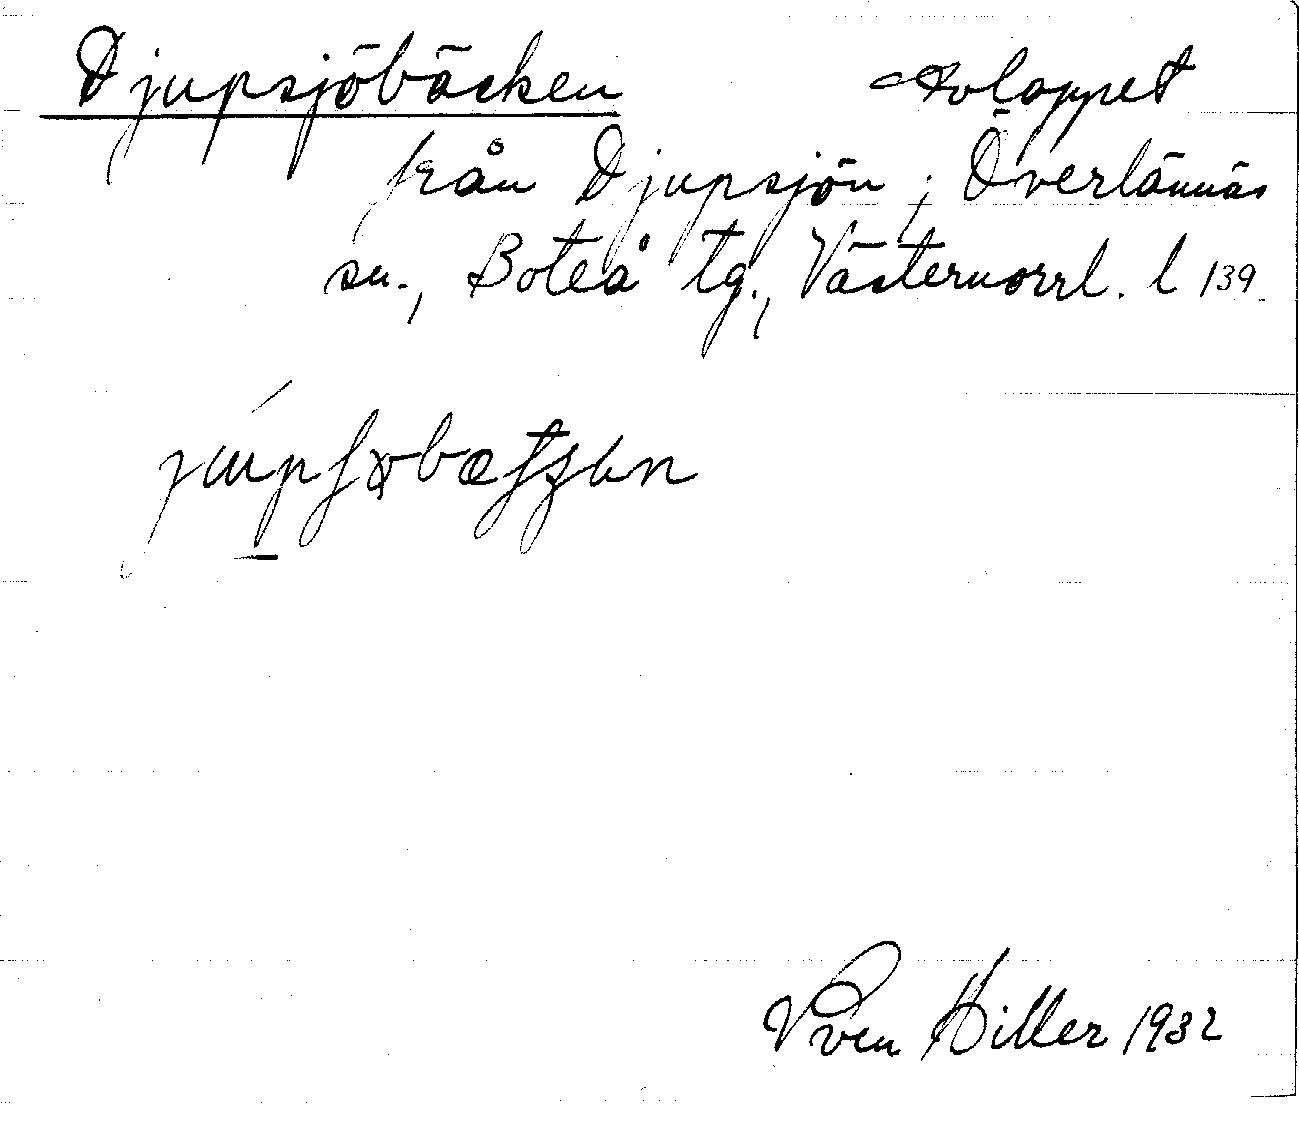 Djupsjöbäcken avloppet
från Djupsjön, Överlännäs
sn., Boteå tg., Västernorrl. l 139
Sven Hiller 1932